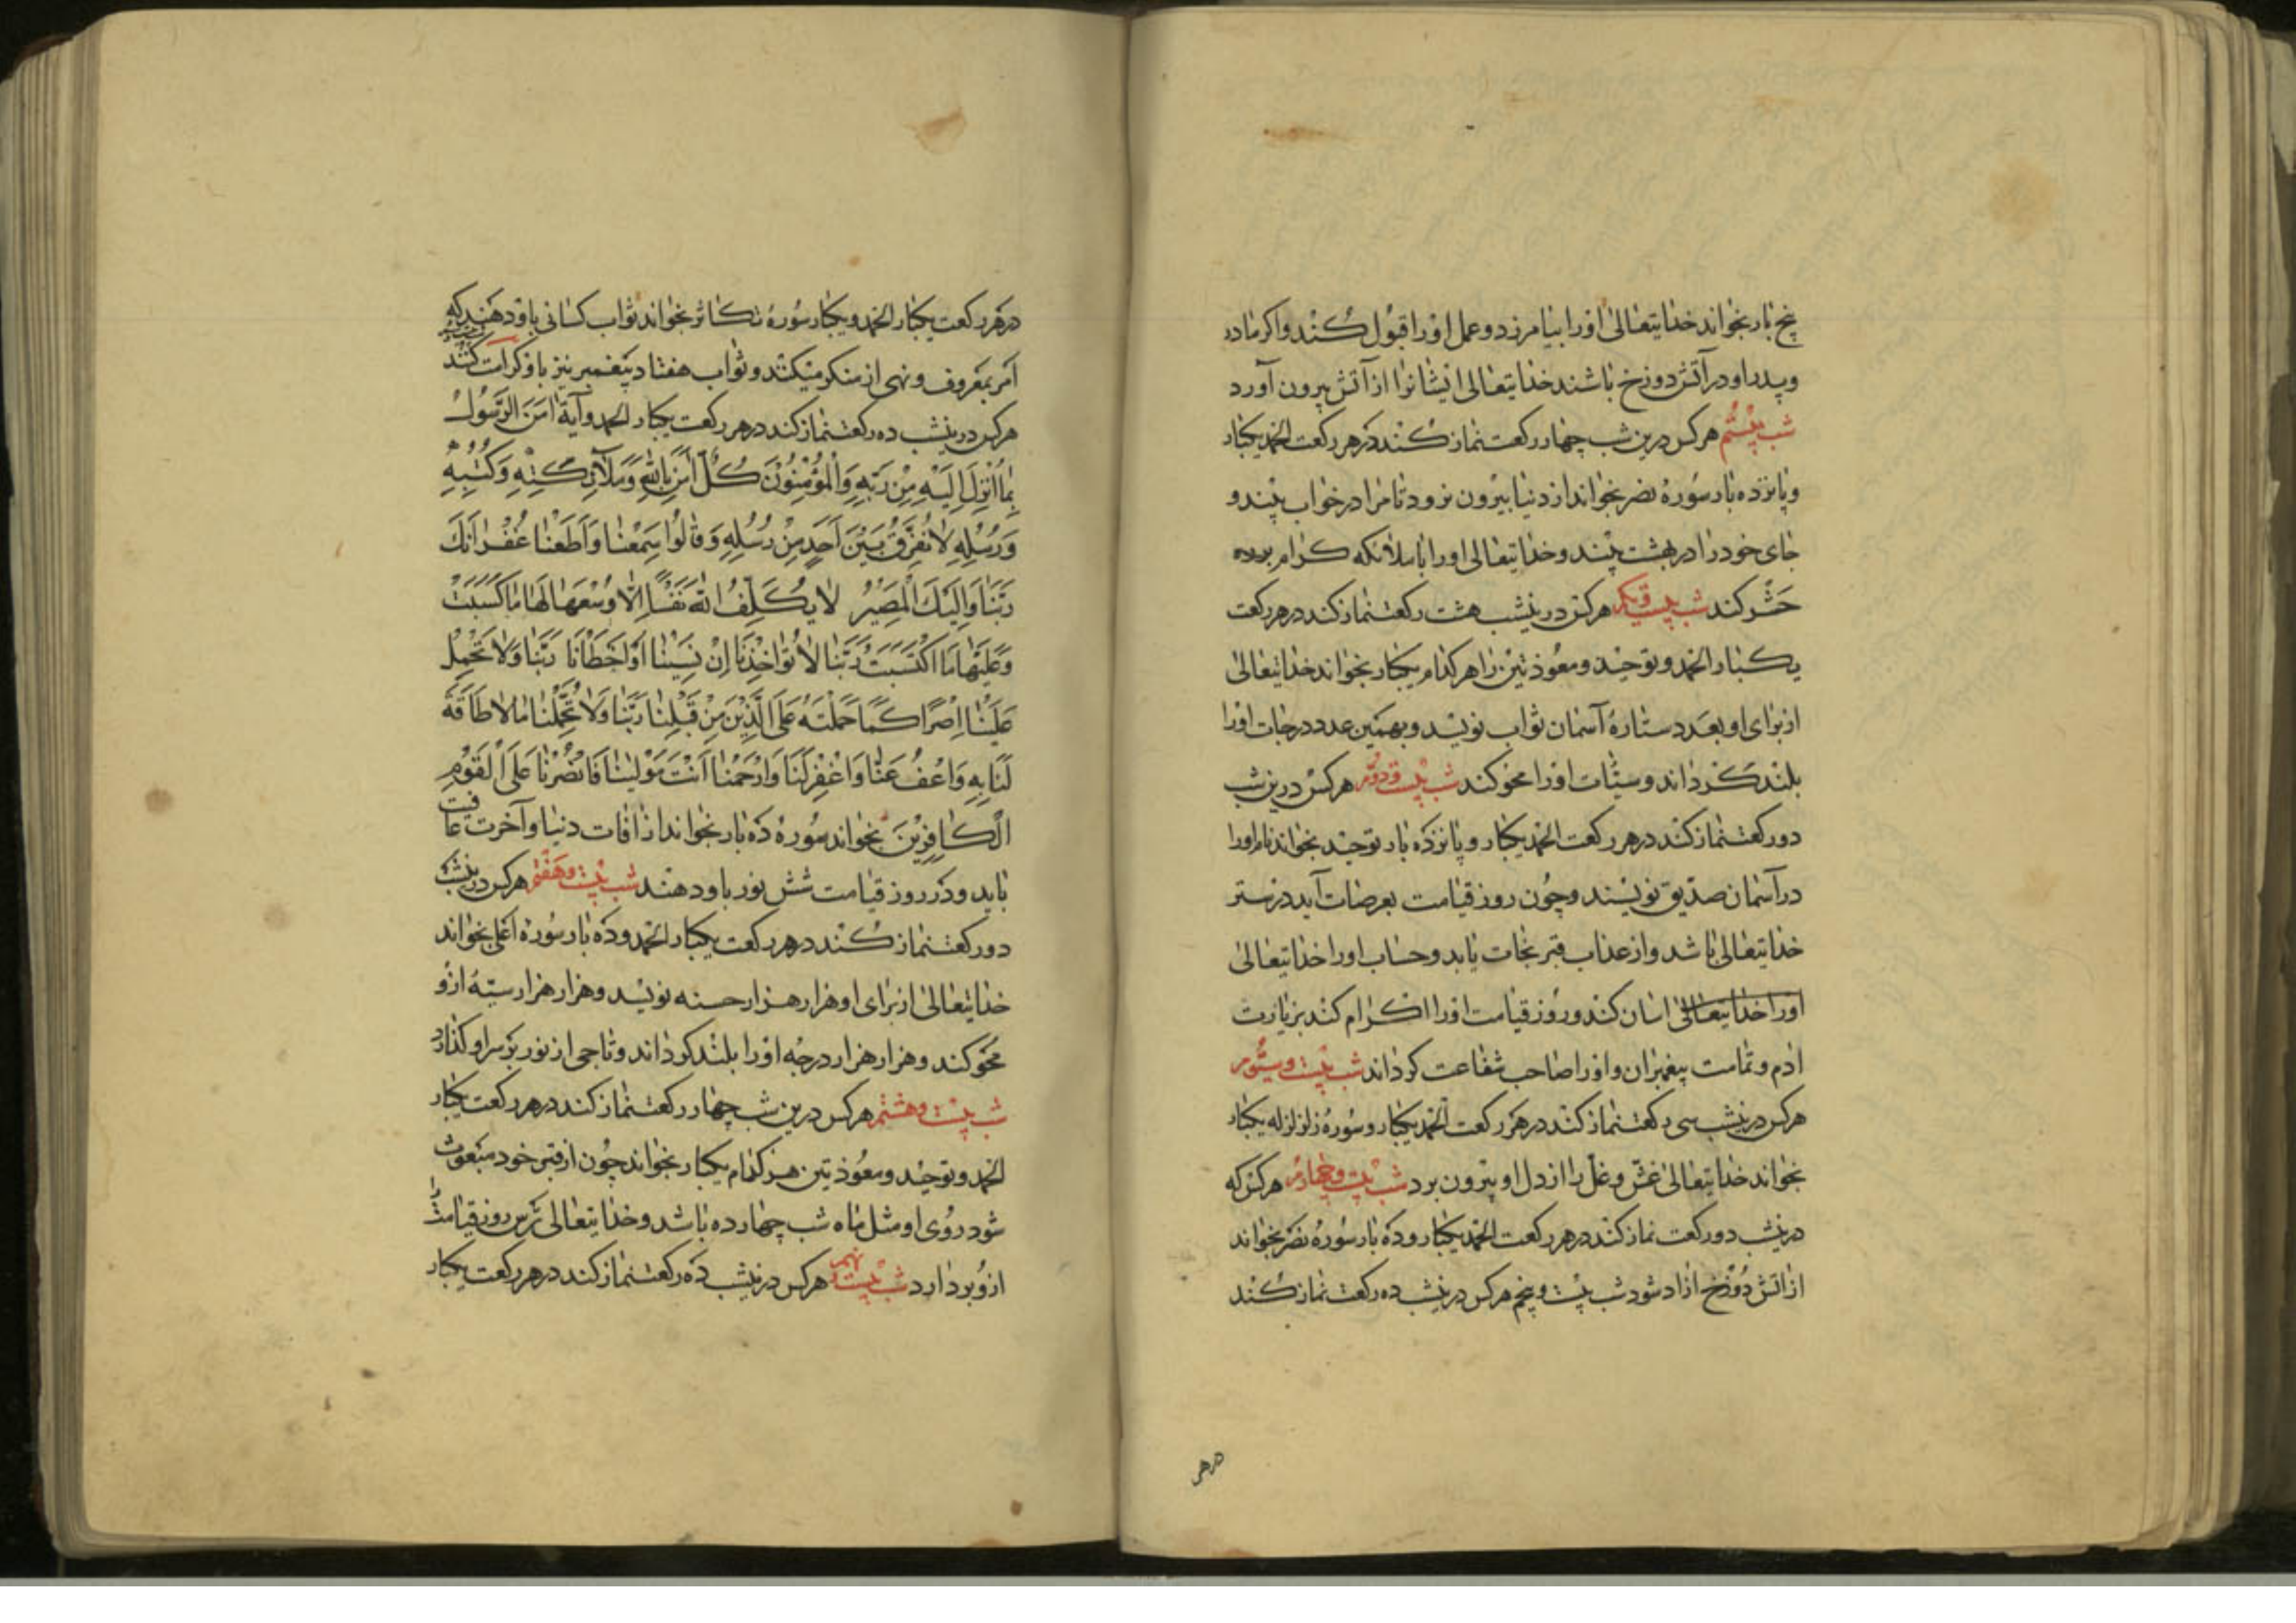 پنج بار بخواند خدایتعالی اورا بیامرزد و عمل اورا قبول کند و اکر مادر
و پدر او در آتش دوزخ باشند خدایتعالی ایشانرا از آتش بیرون آورد
شب بیستم هرکس درین شب چهار رکعت نماز کند در هر رکعت الحمد یکبار
و پانزده بار سوره نصر بخواند از دنیا بیرون نرود تا مرا در خواب بیند و
جای خود را در بهشت بیند و خدایتعالی اورا با ملائکه کرام برره
حشر کند شب بیست و یکم هرکس درینشب هشت رکعت نماز کند در هر رکعت
یکبار الحمد و توحید و معوذتین را هر کدام یکبار بخواند خدایتعالی
از برای او بعدد ستاره آسمان ثواب نویسد و بهمین عدد درجات اورا
بلند کرداند و سیئات اورا محو کند شب بیست و دوم هرکس درین شب
دو رکعت نماز کند در هر رکعت الحمد یکبار و پانزده بار توحید بخواند نام اورا
در آسمان صدیق نویسند و چون روز قیامت بعرصات آید در ستر
خدایتعالی باشد و از عذاب قبر نجات یابد و حساب اورا خدایتعالی
اورا خدایتعالی اسان کند و روز قیامت اورا اکرام کند بزیارت
ادم و تمامت پیغمبران و اورا صاحب شفاعت کرداند شب بیست و سیوم
هرکس درینشب سی رکعت نماز کند در هر رکعت الحمد یکبار و سوره زلزله یکبار
بخواند خدایتعالی غش و غل را از دل او بیرون برد شب بیست و چهارم هرکس که
درینشب دو رکعت نماز کند در هر رکعت الحمد یکبار و ده بار سوره نصر بخواند
از اتش دوزخ ازاد شود شب بیست و پنجم هرکس درینشب ده رکعت نماز کند
در هر
در هر رکعت یکبار الحمد و یکبار سوره تکاثر بخواند ثواب کسانی باو دهند که
امر بمعروف و نهی از منکر میکنند و ثواب هفتاد پیغمبر نیز باو کرامت کنند
هرکس درینشب ده رکعت نماز کند در هر رکعت یکبار الحمد و آیة امَنَ الرَّسُولُ
بِمَا اُنْزِلَ اِلَيْهِ مِنْ رَبِّهِ وَالْمُؤْمِنُونَ كُلٌّ اٰمَنَ بِاللّٰهِ وَمَلَآئِكَتِهِ وَكُتُبِهِ
وَرُسُلِهِ لَا نُفَرِّقُ بَيْنَ اَحَدٍ مِنْ رُسُلِهِ وَقَالُوا سَمِعْنَا وَاَطَعْنَا غُفْرَانَكَ
رَبَّنَا وَاِلَيْكَ الْمَصِيْرُ لَا يُكَلِّفُ اللّٰهُ نَفْسًا اِلَّا وُسْعَهَا لَهَا مَا كَسَبَتْ
وَعَلَيْهَا مَا اكْتَسَبَتْ رَبَّنَا لَا تُؤَاخِذْنَا اِنْ نَسِيْنَا اَوْ اَخْطَأْنَا رَبَّنَا وَلَا تَحْمِلْ
عَلَيْنَا اِصْرًا كَمَا حَمَلْتَهُ عَلَى الَّذِيْنَ مِنْ قَبْلِنَا رَبَّنَا وَلَا تُحَمِّلْنَا مَا لَا طَاقَةَ
لَنَا بِهِ وَاعْفُ عَنَّا وَاغْفِرْ لَنَا وَارْحَمْنَا اَنْتَ مَوْلٰينَا فَانْصُرْنَا عَلَى الْقَوْمِ
الْكَافِرِيْنَ بخواند سوره ده بار بخواند از افات دنیا و آخرت عافیت
یابد و در روز قیامت شش نور باو دهند شب بیست و هفتم هرکس درینشب
دو رکعت نماز کند در هر رکعت یکبار الحمد و ده بار سوره اعلی بخواند
خدایتعالی از برای او هزار هزار حسنه نویسد و هزار هزار سیئه ازو
محو کند و هزار هزار درجه اورا بلند کرداند و تاجی از نور بر سر او کذارد
شب بیست و هشتم هرکس درین شب چهار رکعت نماز کند در هر رکعت یکبار
الحمد و توحید و معوذتین هر کدام یکبار بخواند چون از قبر خود مبعوث
شود روی او مثل ماه شب چهارده باشد و خدایتعالی ترس روز قیامت را
ازو بردارد شب بیست نهم هرکس درینشب ده رکعت نماز کند در هر رکعت یکبار